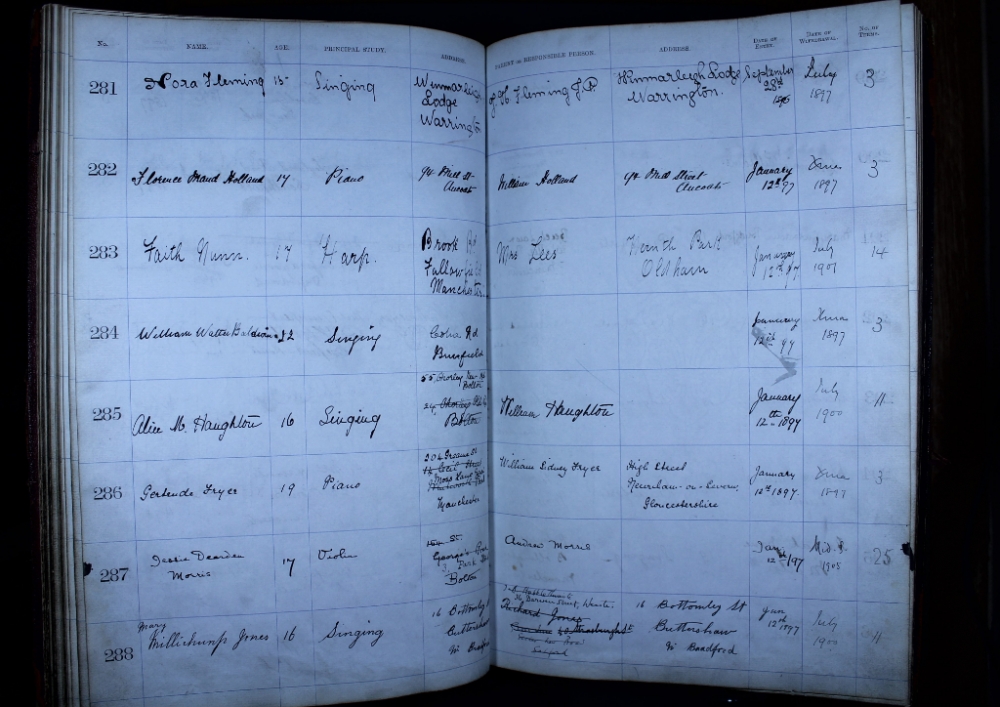 No. NAME. AGE. PRINCIPAL STUDY. ADDRESS. PARENT OR RESPONSIBLE PERSON. ADDRESS DATE OF ENTRY. DATE OF WITHDRAWAL. NO. OF TERMS.
281 Nora Fleming 15 Singing Winmarleigh Lodge Warrington Fleming J.P. Winmarleigh Lodge Warrington. September 28th 1896 July 1897 3
282 Florence Maud Holland 17 Piano 94 Mill St Ancoats William Holland 94 Mill Street Ancoats January 12th 97 Xmas 1897 3
283 Faith Nunn. 17 Harp. Brook Rd Fallowfield Manchester Mrs Lees Werneth Park Oldham January 12th 97 July 1901 14
284 William Walter Baldwin 22 Singing Rd January 12th 97 Xmas 1897 3
285 Alice M. Haughton 16 Singing 55 Chorley New Rd Bolton 24 Bolton William Haughton January 12th 1897 July 1900 11
286 Gertrude Fryer 19 Piano Manchester William Sidney Fryer High Street Newnham-on-Severn, Gloucestershire January 12th 1897. Xmas 1897 3
287 Jessie Dearden Morris 17 Violin St. George's Bolton Andrew Morris Jan 12th 1897 1905 25
288 Mary Millichump Jones 16 Singing 16 Bottomley St Buttershaw Nr Bradford Richard Jones 16 Bottomley St Buttershaw Nr Bradford Jan 12th 1897 July 1900 11